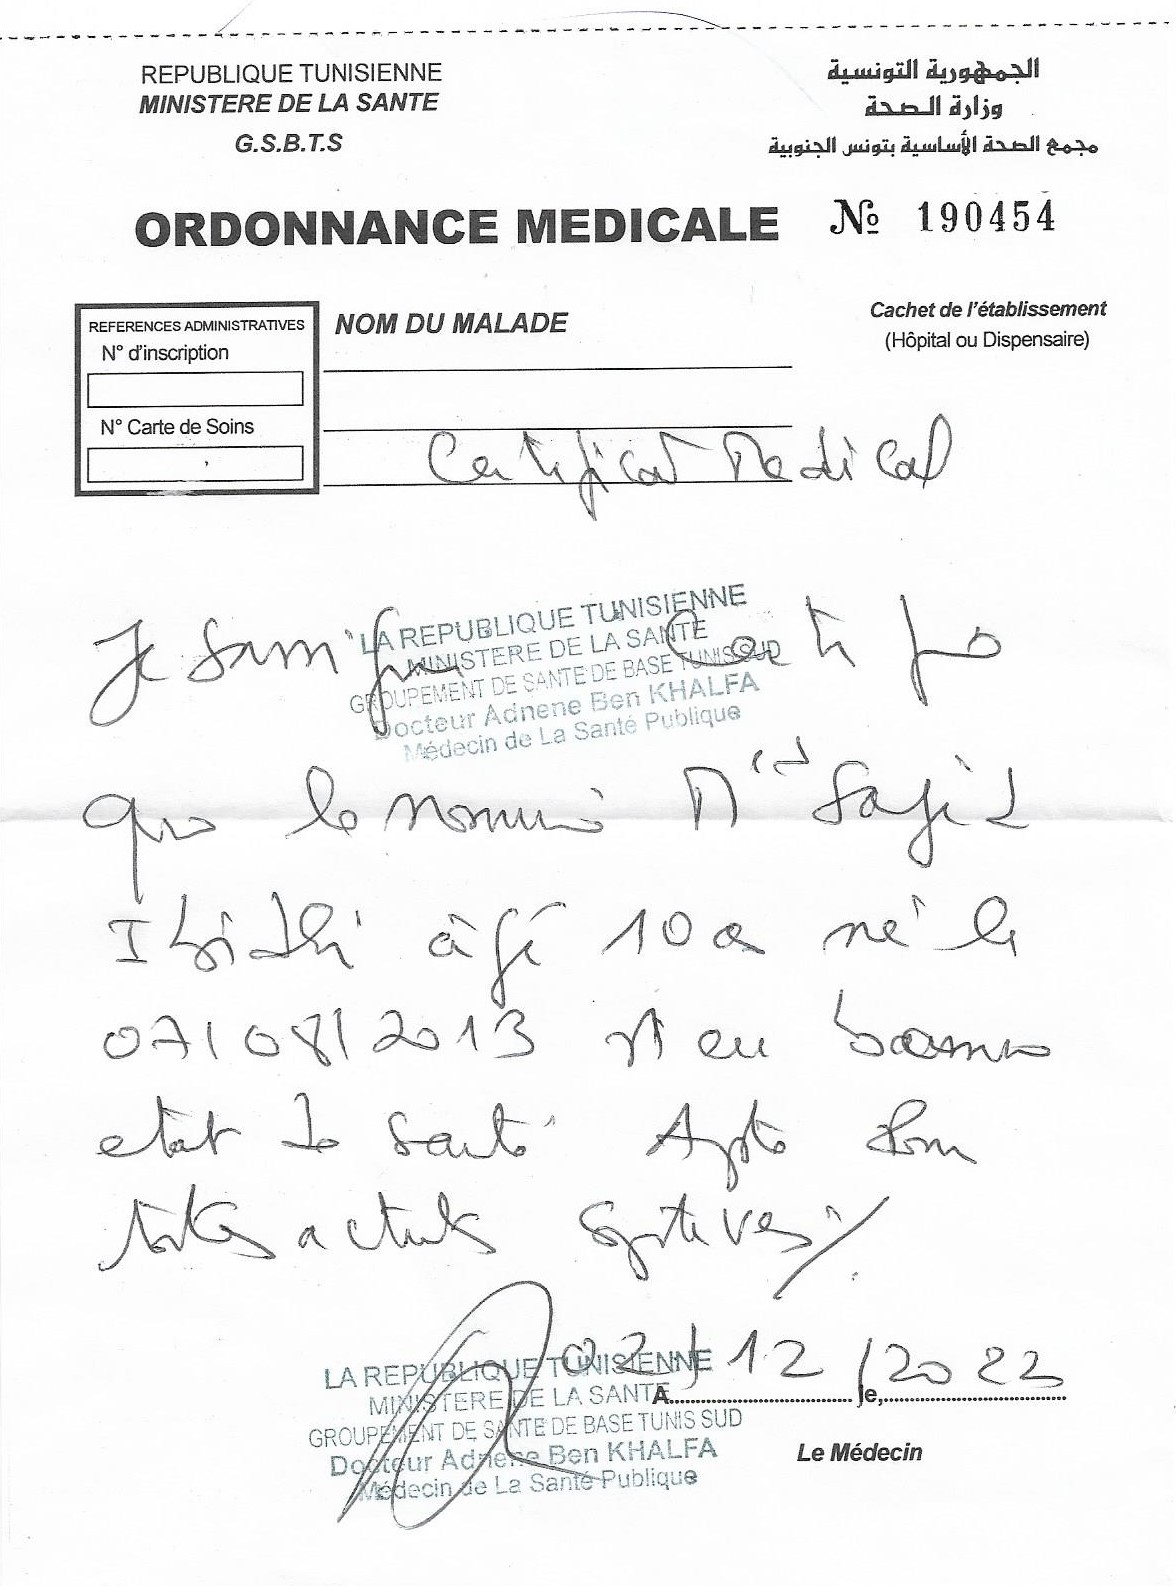 REPUBLIQUE TUNISIENNE
MINISTERE DE LA SANTE
G.S.B.T.S
الجمهورية التونسية
وزارة الصحة
مجمع الصحة الأساسية بتونس الجنوبية
ORDONNANCE MEDICALE № 190454
REFERENCES ADMINISTRATIVES
N° d'inscription
N° Carte de Soins
NOM DU MALADE
Cachet de l'établissement
(Hôpital ou Dispensaire)
Certificat Medical
LA REPUBLIQUE TUNISIENNE
MINISTERE DE LA SANTE
GROUPEMENT DE SANTE DE BASE TUNIS SUD
Docteur Adnene Ben KHALFA
Médecin de La Santé Publique
Je certifie
que le nommé
âgé 10 a né le
07/08/2013 est en bonne
etat de santé Apte pour
toutes activités sportives
02/12/2022
A le,
LA REPUBLIQUE TUNISIENNE
MINISTERE DE LA SANTE
GROUPEMENT DE SANTE DE BASE TUNIS SUD
Docteur Adnene Ben KHALFA
Médecin de La Santé Publique
Le Médecin